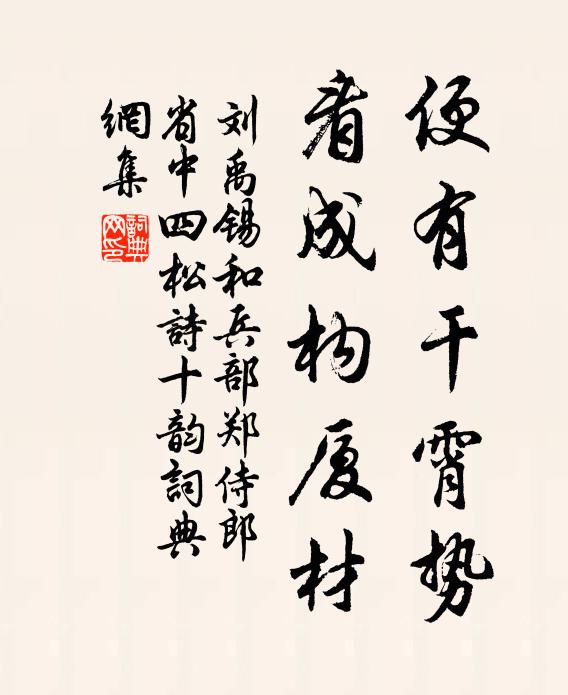 便有干霄势
看成构厦材
刘禹锡和兵部郑侍郎
省中四松詩十韵詞典
網集
詞典
网印